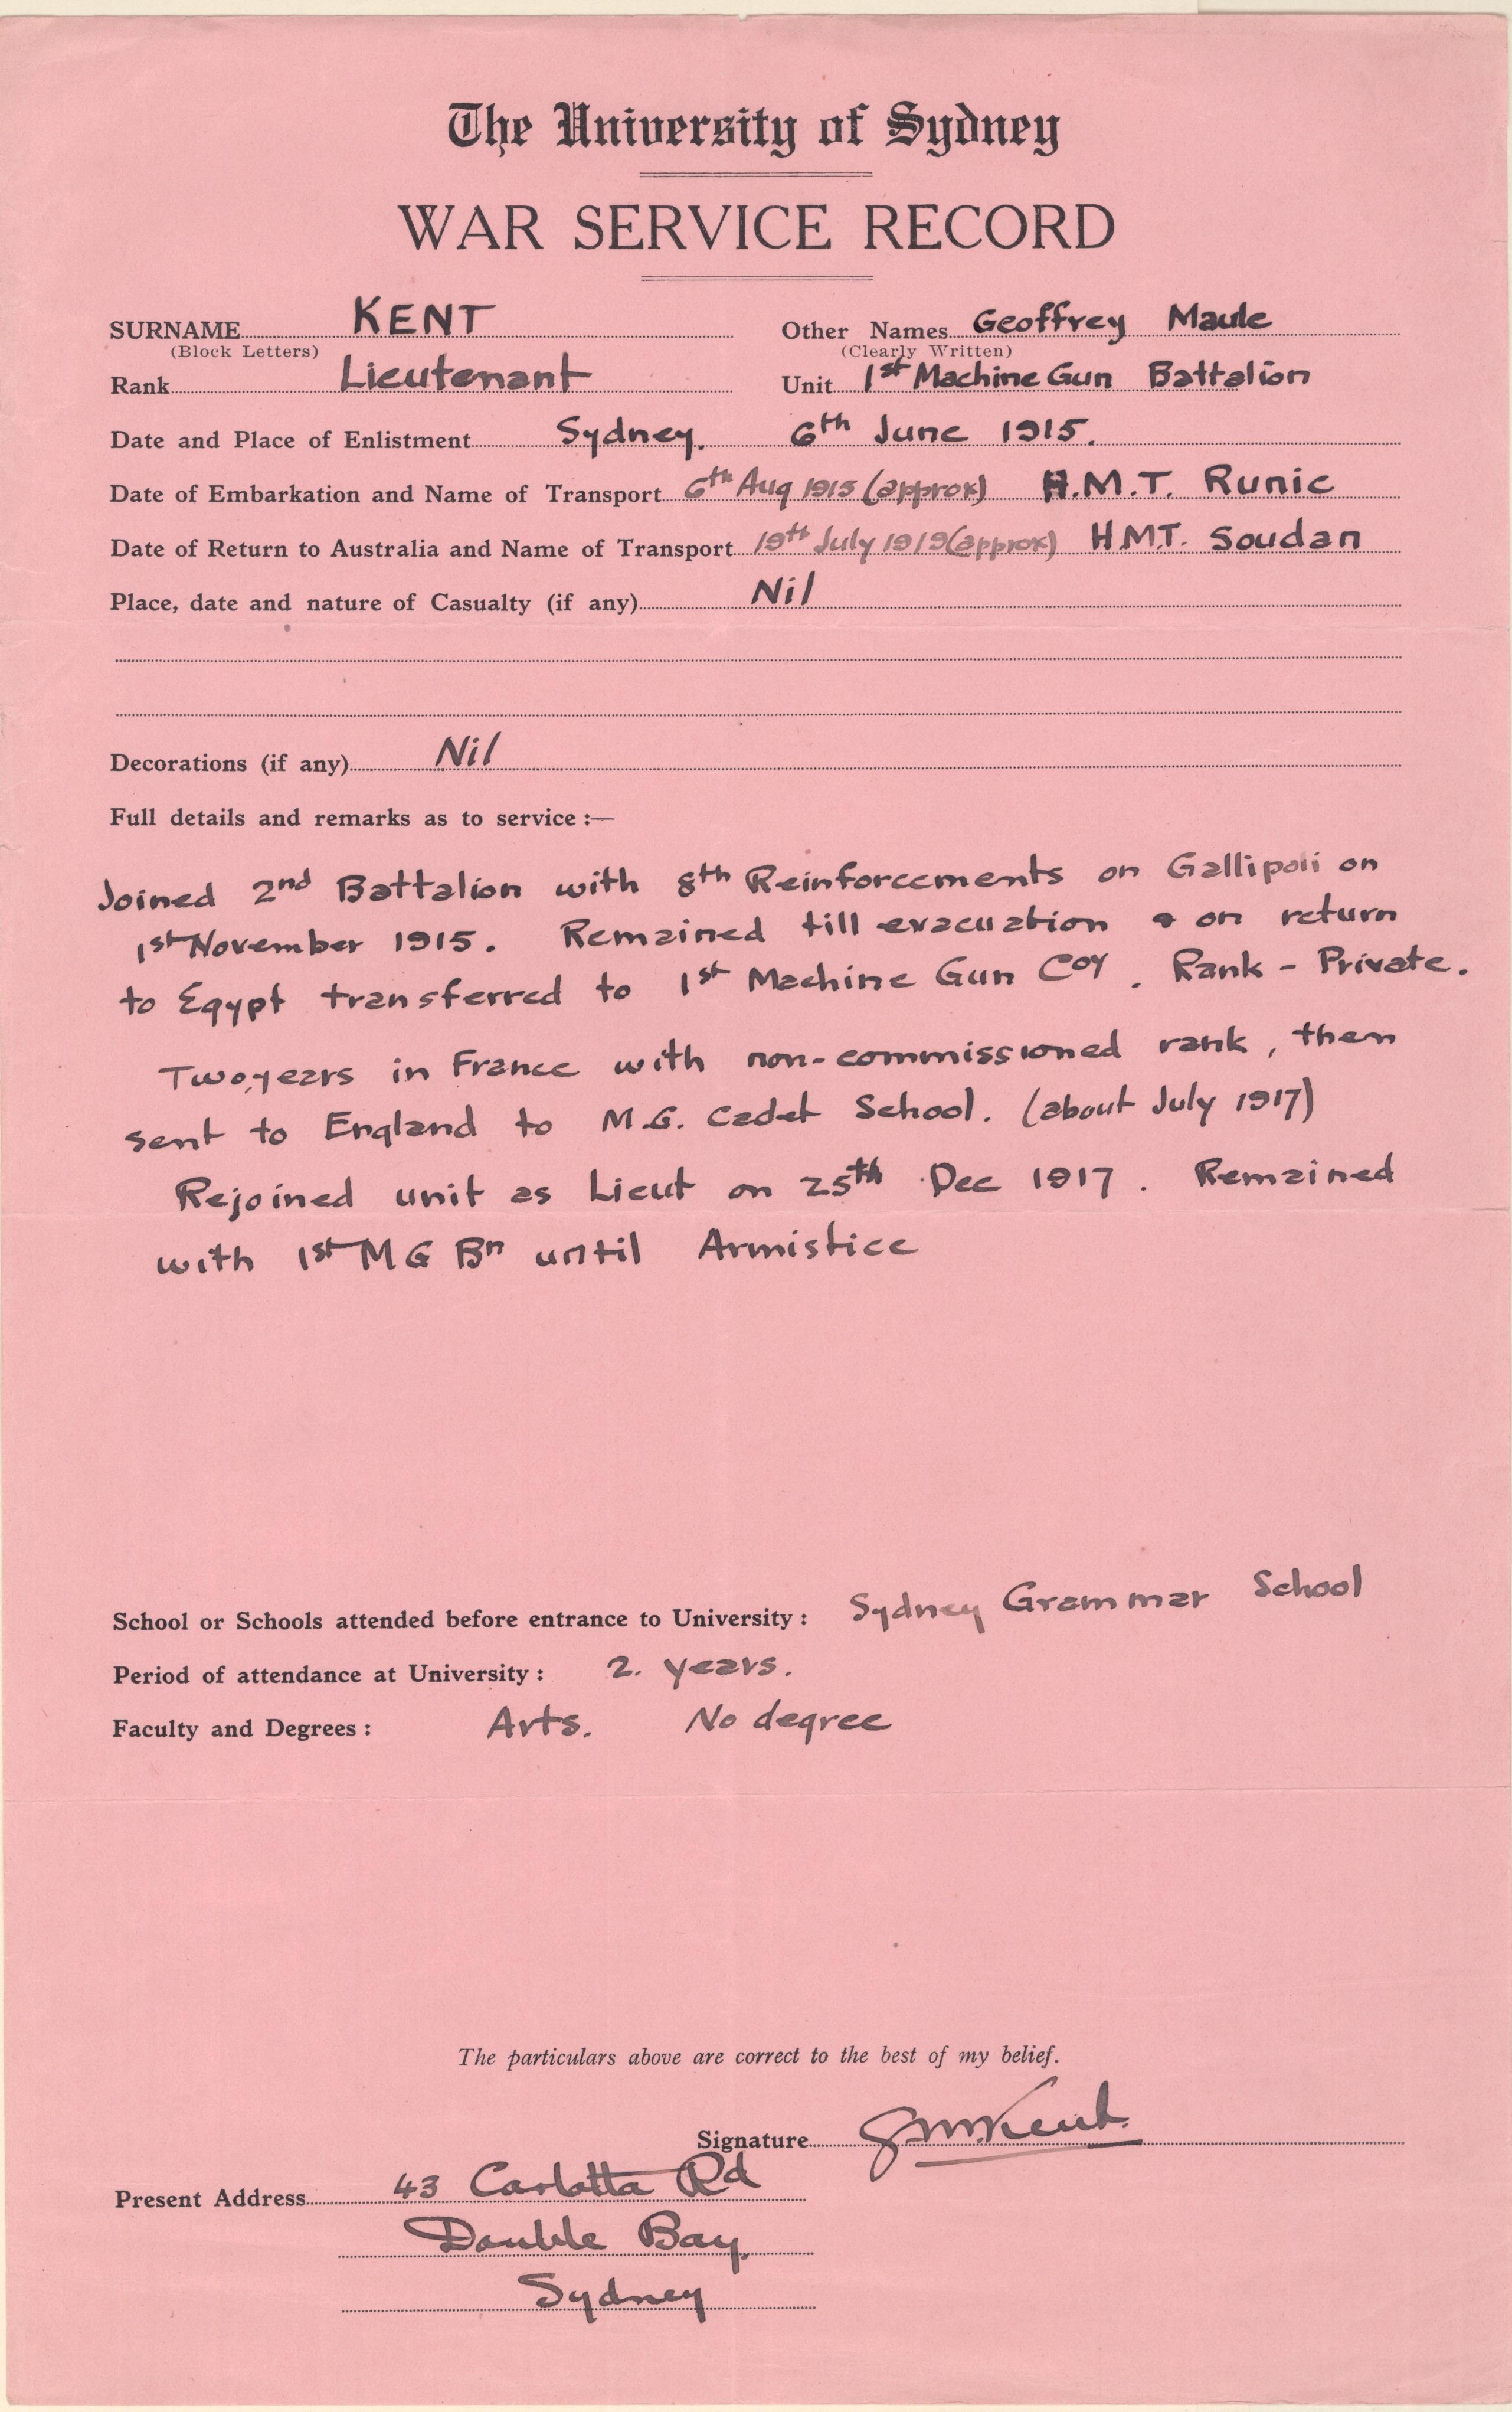 The University of Sydney
WAR SERVICE RECORD
SURNAME KENT Other Names Geoffrey Maule
(Block Letters) (Clearly Written)
Rank Lieutenant Unit 1st Machine Gun Battalion
Date and Place of Enlistment Sydney. 6th June 1915.
Date of Embarkation and Name of Transport 6th Aug 1915 (approx) H.M.T. Runic
Date of Return to Australia and Name of Transport 19th July 1919 (approx) H.M.T. Soudan
Place, date and nature of Casualty (if any) Nil
Decorations (if any) Nil
Full details and remarks as to service :—
Joined 2nd Battalion with 8th Reinforcements on Gallipoli on
1st November 1915. Remained till evacuation & on return
to Egypt transferred to 1st Machine Gun Coy. Rank - Private.
Two years in France with non-commissioned rank, then
sent to England to M.G. Cadet School. (about July 1917)
Rejoined unit as Lieut on 25th Dec 1917. Remained
with 1st M G Bn until Armistice
School or Schools attended before entrance to University : Sydney Grammar School
Period of attendance at University : 2. years.
Faculty and Degrees : Arts. No degree
The particulars above are correct to the best of my belief.
Signature G.M.Kent.
Present Address 43 Carlotta Rd
Double Bay.
Sydney